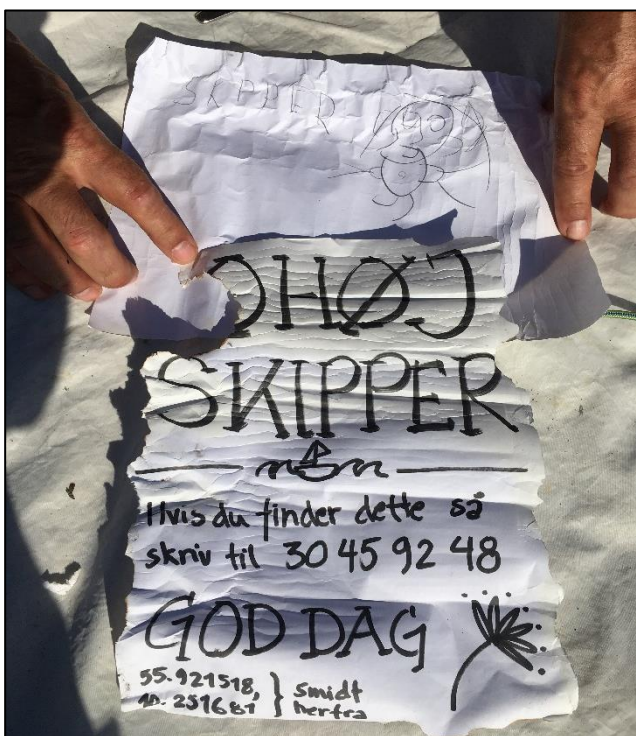 SKIPPER
OHØJ
SKIPPER
Hvis du finder dette så
skriv til 30 45 92 48
GOD DAG
55.921518,
10.251681 } smidt
herfra